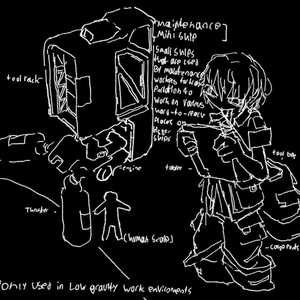 [maintenance]
Mini ship
Small ships
that are used
By maintenance
workers for
work on various
hard-to-reach
places on
ships
tool rack
engine
tool bag
tablet
Thruster
[human scale]
cargo pants
only used in low gravity work enviroments